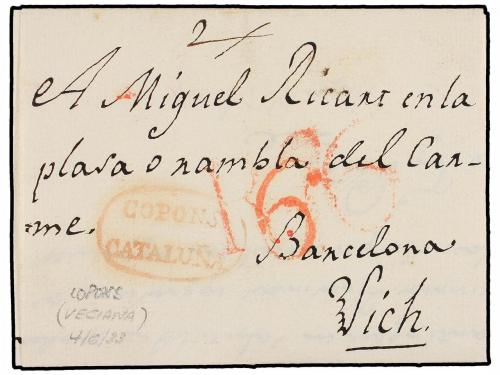 A Miguel Ricart en la
plasa o rambla del Car-
me.
COPONS
CATALUÑA
Barcelona
Vich.
COPONS
(VECIANA)